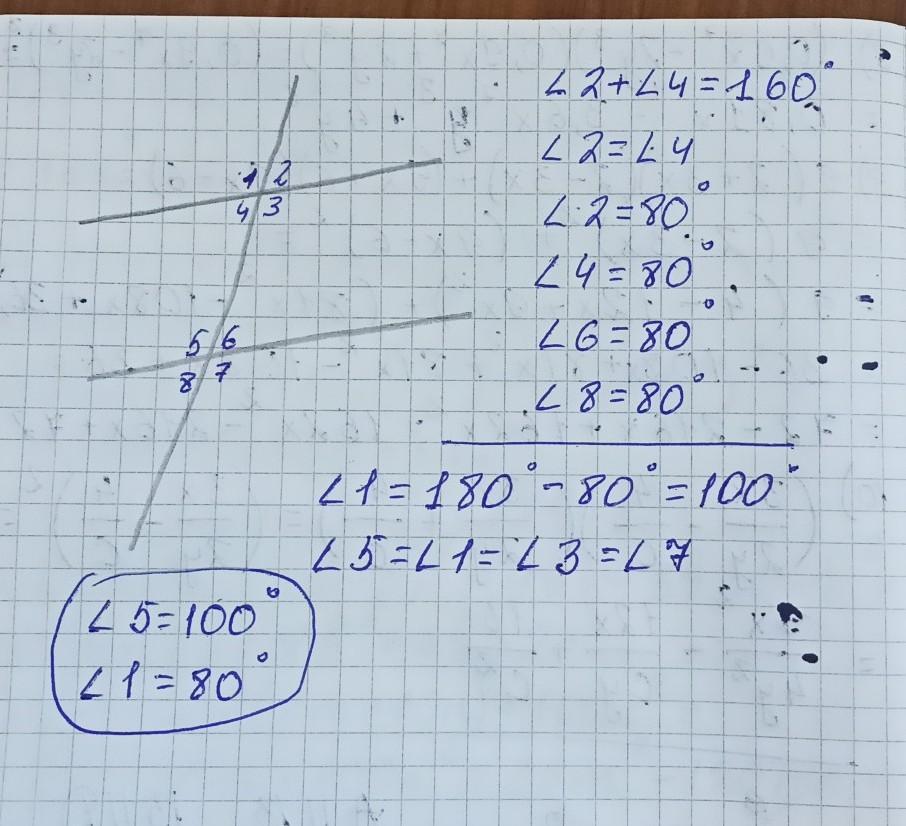 1 2
4 3
5 6
8 7
∠2+∠4=160°
∠2=∠4
∠2=80°
∠4=80°
∠6=80°
∠8=80°
∠1=180°-80°=100°
∠5=∠1=∠3=∠7
∠5=100°
∠1=80°